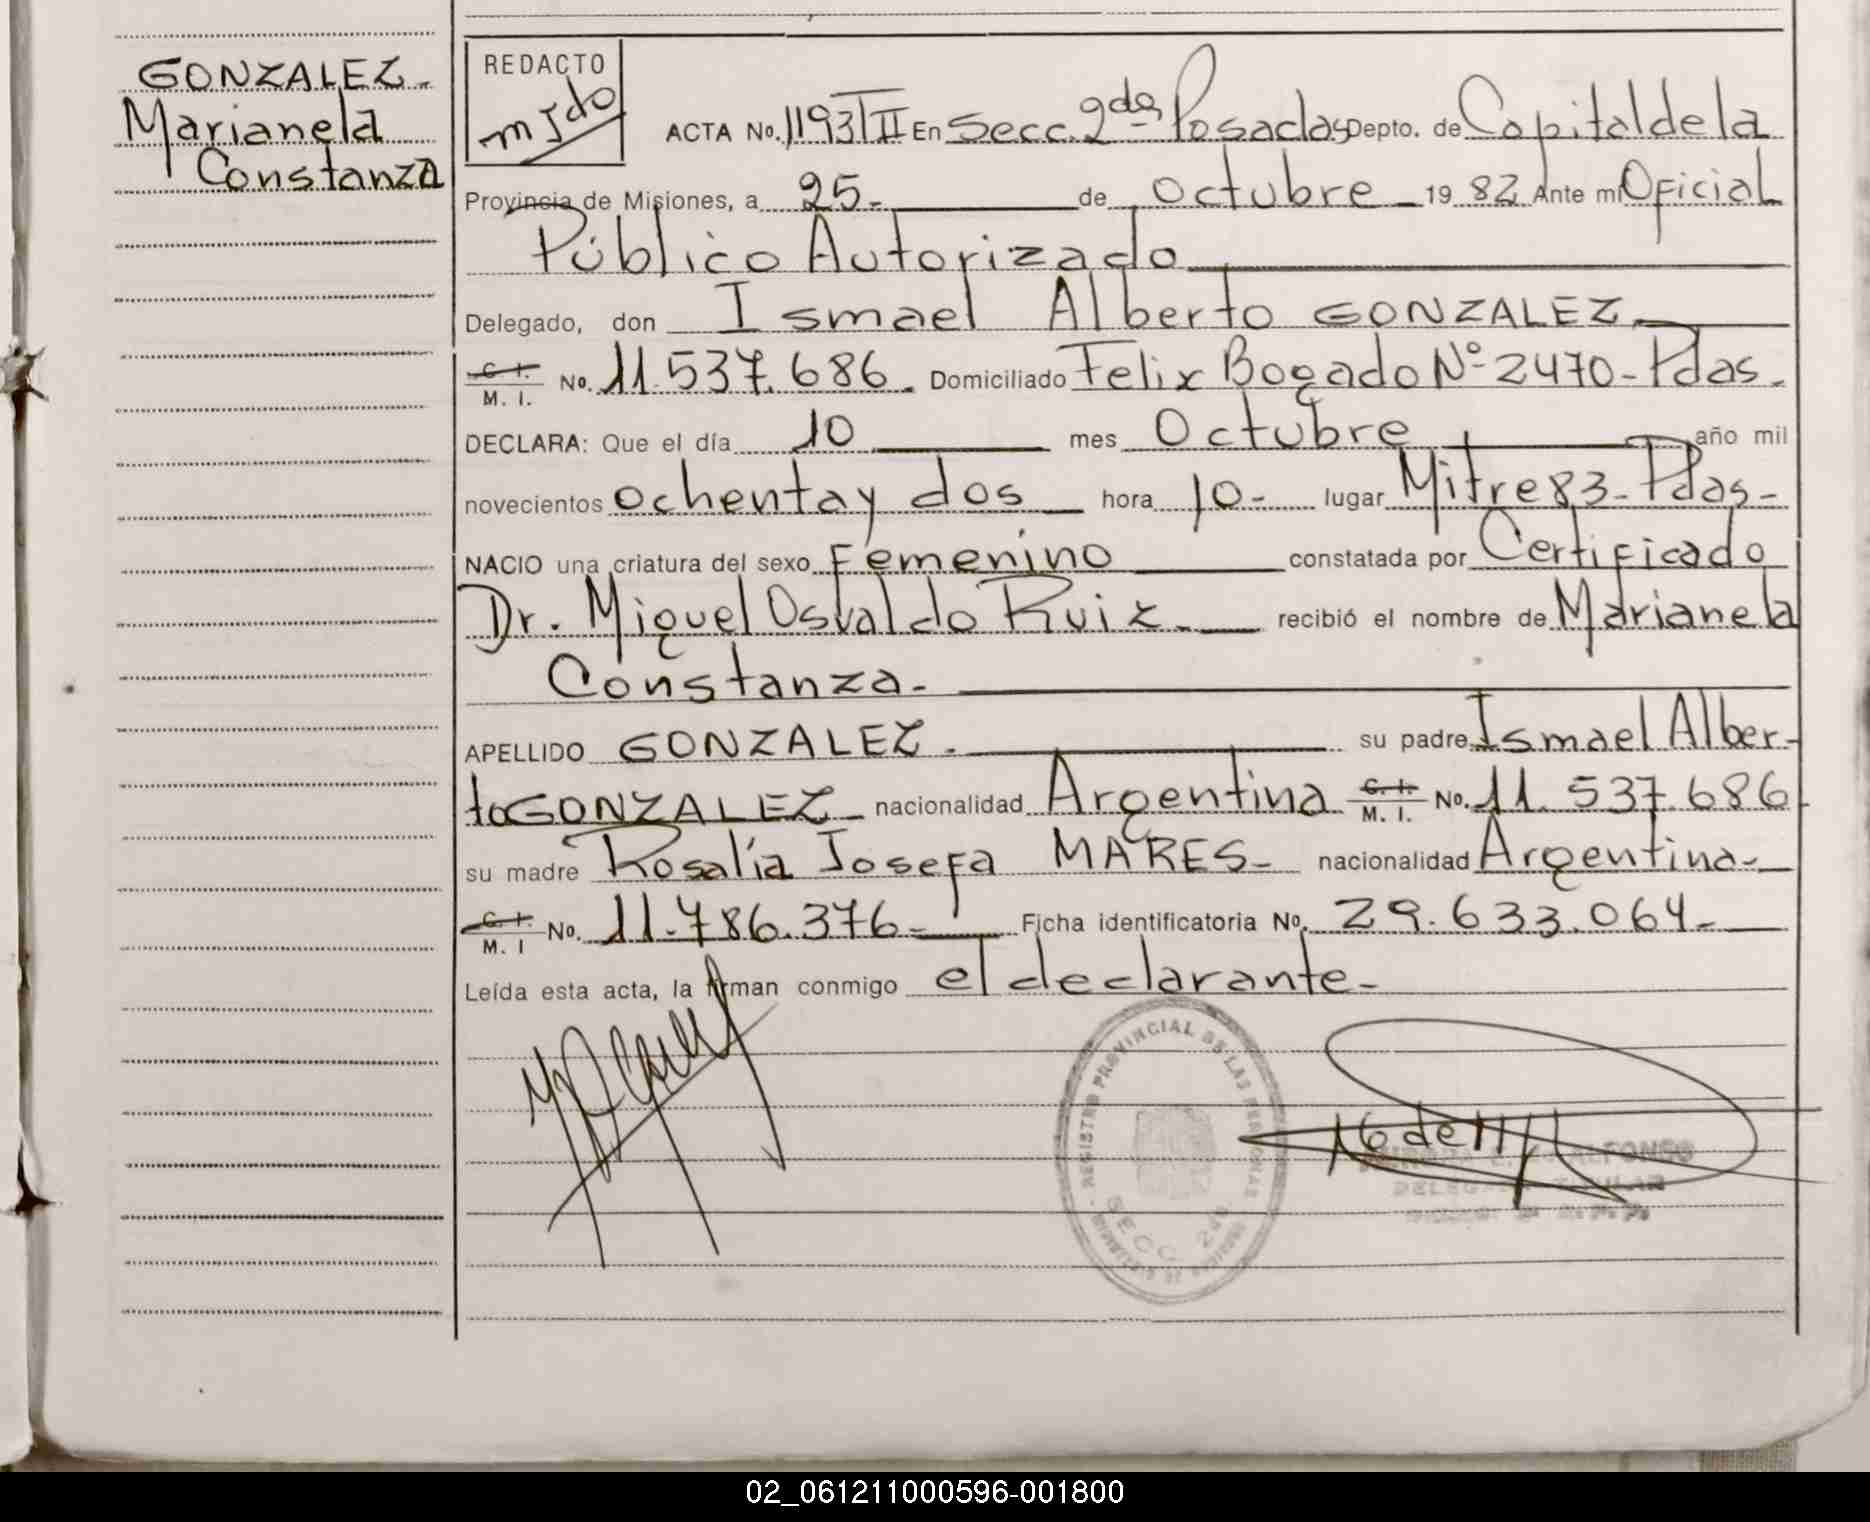 GONZALEZ.
Marianela
Constanza
REDACTO
ACTA No. 1193/II En Secc. 2da Posadas Depto. de Capital de la
Provincia de Misiones, a 25. de Octubre 1982 Ante mi Oficial
Público Autorizado
Delegado, don Ismael Alberto GONZALEZ.
C. I. M. I. No. 11.537.686. Domiciliado Felix Bogado Nº 2470- Pdas.
DECLARA: Que el día 10 mes Octubre año mil
novecientos ochenta y dos hora 10- lugar Mitre 83- Pdas-
NACIO una criatura del sexo Femenino constatada por Certificado
Dr. Miguel Osvaldo Ruiz. recibió el nombre de Marianela
Constanza-
APELLIDO GONZALEZ. su padre Ismael Alber-
to GONZALEZ nacionalidad Argentina C. I. M. I. No. 11.537.686
su madre Rosalía Josefa MARES- nacionalidad Argentina-
C. I. M. I No. 11.786.376- Ficha identificatoria No. 29.633.064-
Leída esta acta, la firman conmigo el declarante-
REGISTRO PROVINCIAL DE LAS PERSONAS
SECC. 2da.
DELEGADA TITULAR
02_061211000596-001800